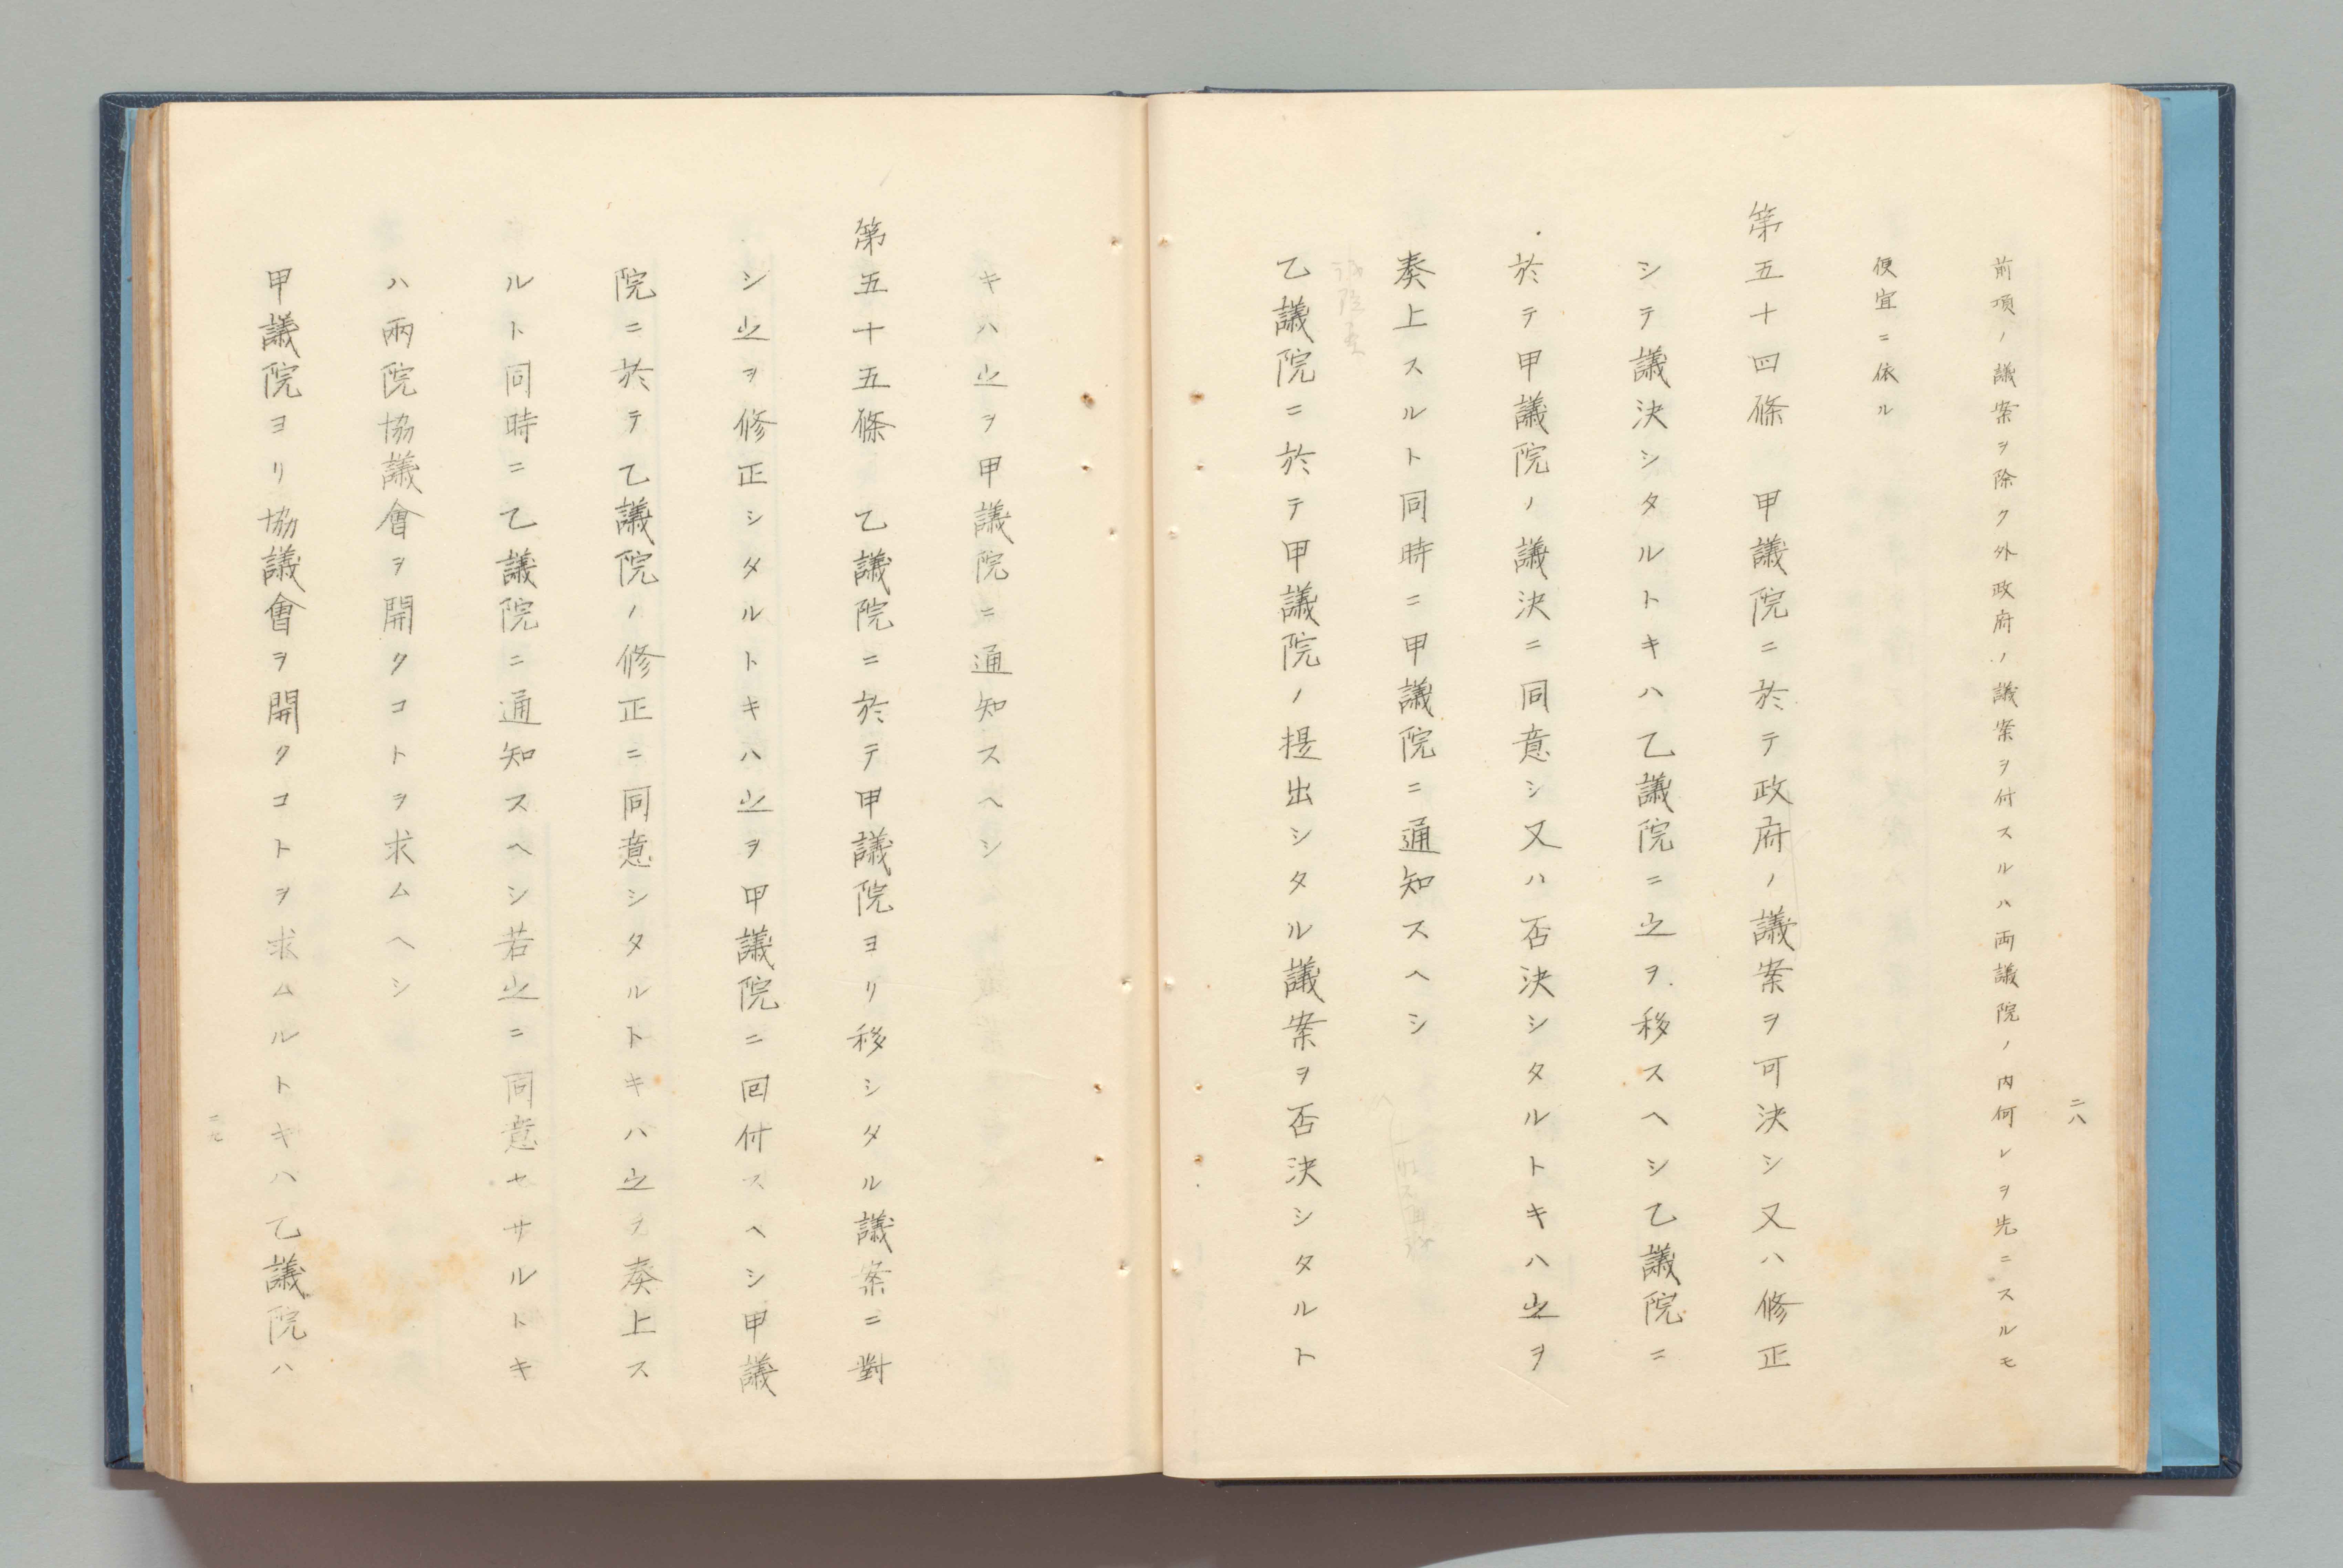 二八
前項ノ議案ヲ除ク外政府ノ議案ヲ付スルハ両議院ノ内何レヲ先ニスルモ
便宜ニ依ル
第五十四條 甲議院ニ於テ政府ノ議案ヲ可決シ又ハ修正
シテ議決シタルトキハ乙議院ニ之ヲ移スヘシ乙議院ニ
於テ甲議院ノ議決ニ同意シ又ハ否決シタルトキハ之ヲ
奏上スルト同時ニ甲議院ニ通知スヘシ
乙議院ニ於テ甲議院ノ提出シタル議案ヲ否決シタルト
キハ之ヲ甲議院ニ通知スヘシ
第五十五條 乙議院ニ於テ甲議院ヨリ移シタル議案ニ對
シ之ヲ修正シタルトキハ之ヲ甲議院ニ回付スヘシ甲議
院ニ於テ乙議院ノ修正ニ同意シタルトキハ之ヲ奏上ス
ルト同時ニ乙議院ニ通知スヘシ若之ニ同意セサルトキ
ハ兩院協議會ヲ開クコトヲ求ムヘシ
甲議院ヨリ協議會ヲ開クコトヲ求ムルトキハ乙議院ハ
二九